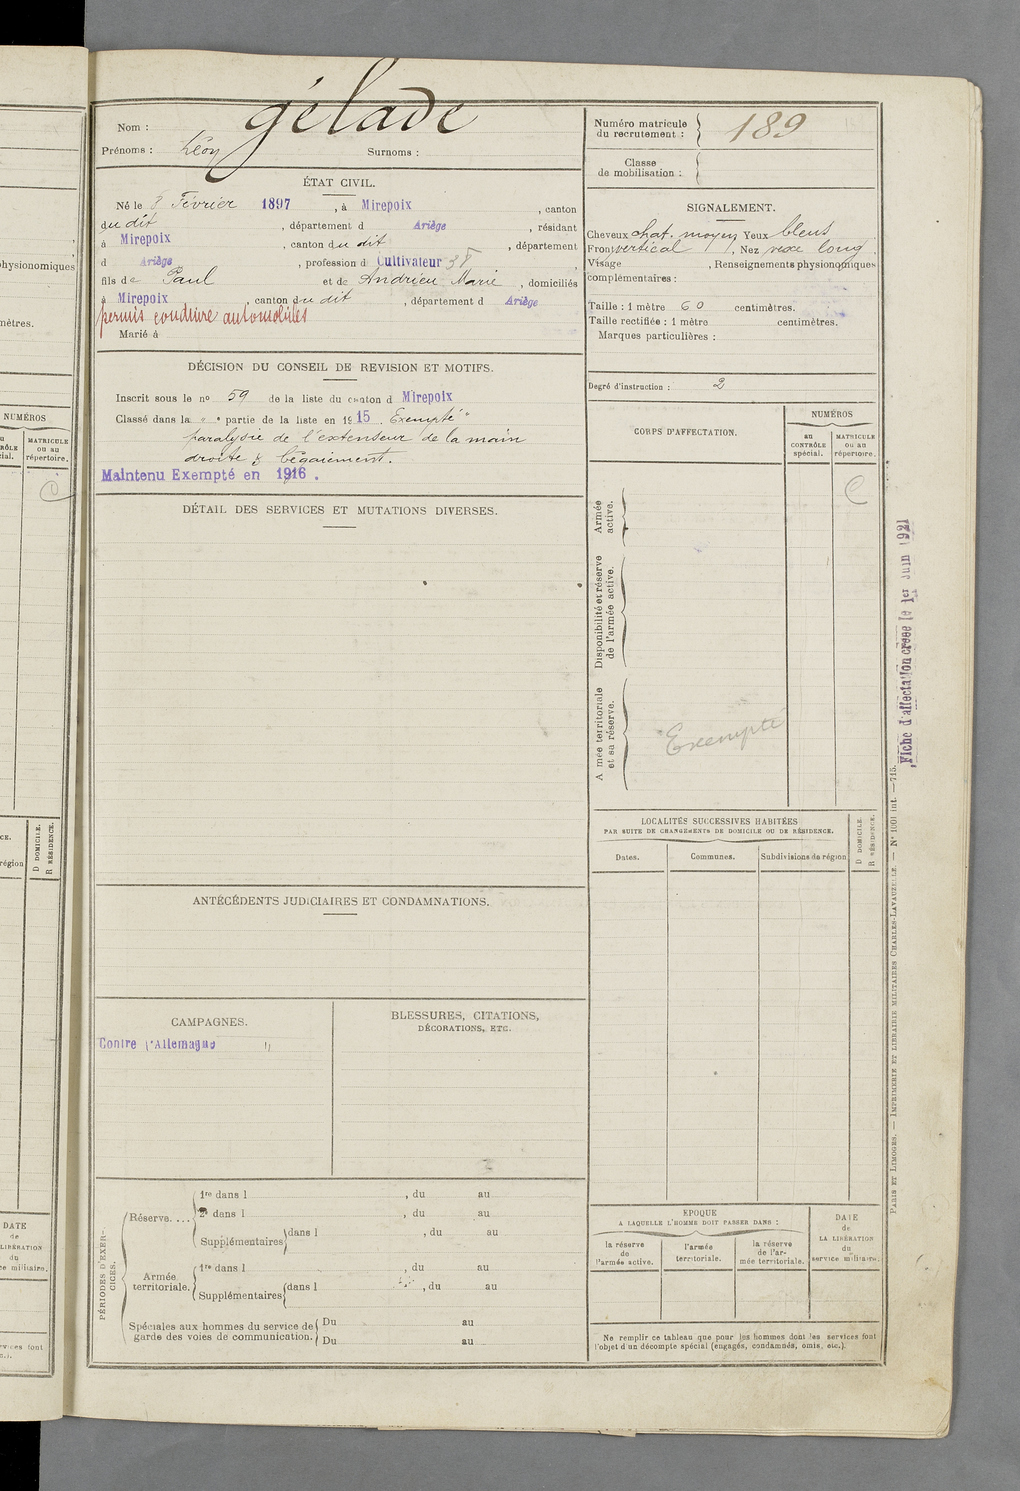 Nom : gélade
Prénoms : Léon Surnoms :
ÉTAT CIVIL.
Né le 8 Février 1897, à Mirepoix, canton
du dit, département d Ariège, résidant
à Mirepoix, canton du dit, département
d Ariège, profession d Cultivateur
fils de Paul et de Andrieu Marie, domiciliés
à Mirepoix, canton du dit, département d Ariège
permis conduire automobiles
Marié à
DÉCISION DU CONSEIL DE REVISION ET MOTIFS.
Inscrit sous le no 59 de la liste du canton d Mirepoix
Classé dans la " " partie de la liste en 1915. Exempté "
paralysie de l'extenseur de la main
droite & bégaiement.
Maintenu Exempté en 1916.
DÉTAIL DES SERVICES ET MUTATIONS DIVERSES.
ANTÉCÉDENTS JUDICIAIRES ET CONDAMNATIONS.
CAMPAGNES.
Contre l'Allemagne
BLESSURES, CITATIONS,
DÉCORATIONS, ETC.
PÉRIODES D'EXERCICES.
Réserve....
1re dans l , du au
2e dans l , du au
Supplémentaires dans l , du au
Armée
territoriale.
1re dans l , du au
Supplémentaires dans l , du au
Spéciales aux hommes du service de
garde des voies de communication.
Du au
Du au
Numéro matricule
du recrutement : 189
Classe
de mobilisation :
SIGNALEMENT.
Cheveux chat. moyen Yeux bleus
Front vertical, Nez long
Visage , Renseignements physionomiques
complémentaires :
Taille : 1 mètre 60 centimètres.
Taille rectifiée : 1 mètre centimètres.
Marques particulières :
Degré d'instruction : 2
CORPS D'AFFECTATION.
NUMÉROS
au
CONTRÔLE
spécial.
MATRICULE
ou au
répertoire.
C
Armée
active.
Disponibilité et réserve
de l'armée active.
Armée territoriale
et sa réserve.
Exempté
LOCALITÉS SUCCESSIVES HABITÉES
PAR SUITE DE CHANGEMENTS DE DOMICILE OU DE RÉSIDENCE.
D DOMICILE.
R RÉSIDENCE.
Dates. Communes. Subdivisions de région
ÉPOQUE
A LAQUELLE L'HOMME DOIT PASSER DANS :
la réserve
de
l'armée active.
l'armée
territoriale.
la réserve
de l'ar-
mée territoriale.
DATE
de
LA LIBÉRATION
du
service militaire.
Ne remplir ce tableau que pour les hommes dont les services font
l'objet d'un décompte spécial (engagés, condamnés, omis, etc.).
Fiche d'affectation créée le 1er Juin 1921
PARIS ET LIMOGES. — IMPRIMERIE ET LIBRAIRIE MILITAIRES CHARLES-LAVAUZELLE. — No 1001 int. — 715.
physionomiques
mètres.
NUMÉROS
MATRICULE
ou au
répertoire.
C
D DOMICILE.
R RÉSIDENCE.
région
DATE
de
LA LIBÉRATION
du
service militaire.